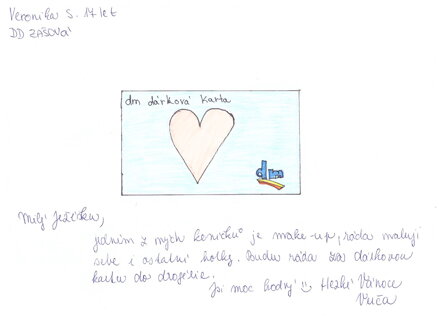 Veronika S. 17 let
DD ZAŠOVÁ
dm dárková karta
dm
Milý Ježíšku,
jedním z mých koníčků je make-up, ráda maluji
sebe i ostatní holky. Budu ráda za dárkovou
kartu do drogérie.
Jsi moc hodný Hezké Vánoce